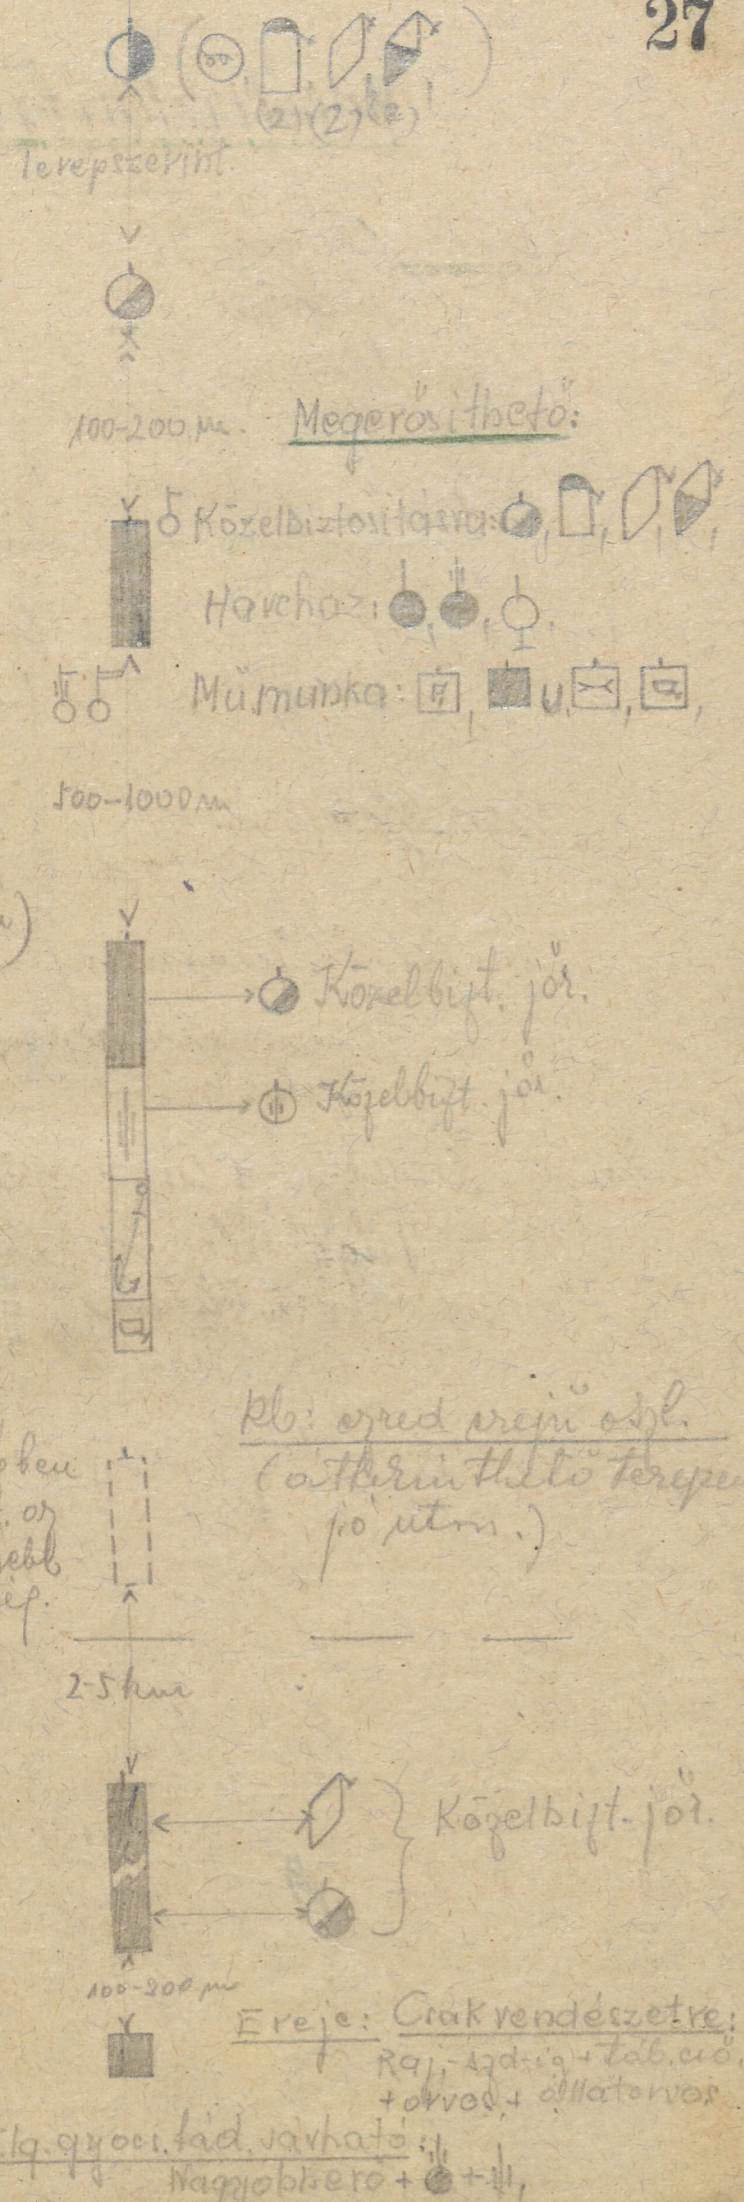 27
(2) (2) (2)
Terepszerint.
100-200 m. Megerősithető:
Közelbiztositásra:
Harchoz:
Műmunka:
500-1000 m
Közelbizt. jőr.
Közelbizt. jőr.
kb: ezred erejű oszl.
(áttekinthető terepen
jó úton.)
2-5 km
Közelbizt. jőr.
100-200 m
Ereje: Csak rendészetre:
Raj,-szd-ig + táb. cső.
+ orvos + állatorvos
várható:
Nagyobb erő +